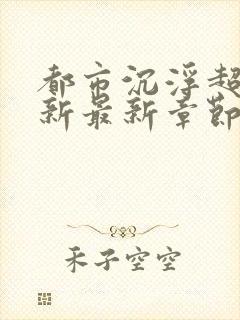 都市沉浮超
新最新章節
禾子空空